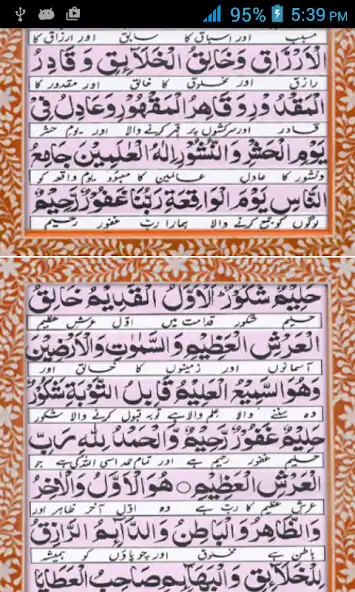 95% 5:39 PM
مسبب اور اسباق کا سابق اور ارزاق کا
الْاَرْزَاقِ وَخَالِقُ الْخَلَائِقِ وَقَادِرُ
رازق اور مخلوق کا خالق اور مقدور کا
الْمَقْدُوْرِ وَقَاهِرُ الْمَقْهُوْرِ وَعَادِلٌ فِيْ
قادر اور سرکشوں پر قہر کرنے والا اور یوم حشر
يَوْمِ الْحَشْرِ وَالنُّشُوْرِ اِلٰهُ الْعٰلَمِيْنَ جَامِعُ
ونشور کا عادل عالمین کا معبود یوم واقعہ کو
النَّاسِ يَوْمَ الْوَاقِعَةِ رَبُّنَا غَفُوْرٌ رَّحِيْمٌ
لوگوں کو جمع کرنے والا ہمارا رب غفور رحیم
حَلِيْمٌ شَكُوْرٌ اَلْاَوَّلُ الْقَدِيْمُ خَالِقُ
حلیم شکور قدامت میں اوّل عرش عظیم
الْعَرْشِ الْعَظِيْمِ وَالسَّمٰوٰتِ وَالْاَرْضِيْنَ
آسمانوں اور زمینوں کا خالق اور
وَهُوَ السَّمِيْعُ الْعَلِيْمُ قَابِلُ التَّوْبَةِ شَكُوْرٌ
وہ سننے والا علم والا ہے توبہ قبول کرنے والا شکور
حَلِيْمٌ غَفُوْرٌ رَّحِيْمٌ وَالْحَمْدُ لِلّٰهِ رَبِّ
حلیم غفور رحیم ہے اور تمام حمد اسی اللہ کی ہے جو
الْعَرْشِ الْعَظِيْمِ ۝ هُوَ الْاَوَّلُ وَالْاٰخِرُ
عرش عظیم کا رب ہے وہ اوّل آخر ظاہر اور
وَالظَّاهِرُ وَالْبَاطِنُ وَالدَّآئِمُ الرَّازِقُ
باطن ہے مخلوق اور چوپاؤں کو ہمیشہ
لِلْخَلَائِقِ وَالْبَهَآئِمِ صَاحِبُ الْعَطَايَا